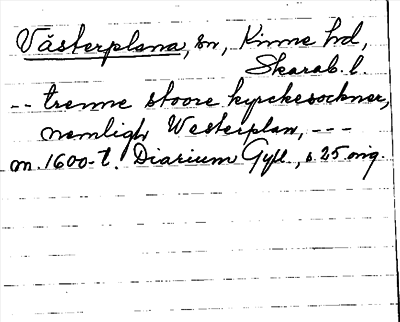 Västerplana, sn, Kinne hd,
Skarab. l.
-- trenne stoore kyrckesockner,
namligh Westerplan, ---
m. 1600-t. Diarium Gyll., s. 25 orig.